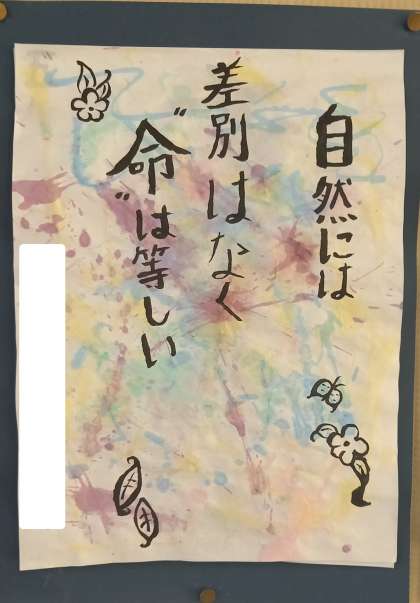 自然には
差別はなく
"命"は等しい